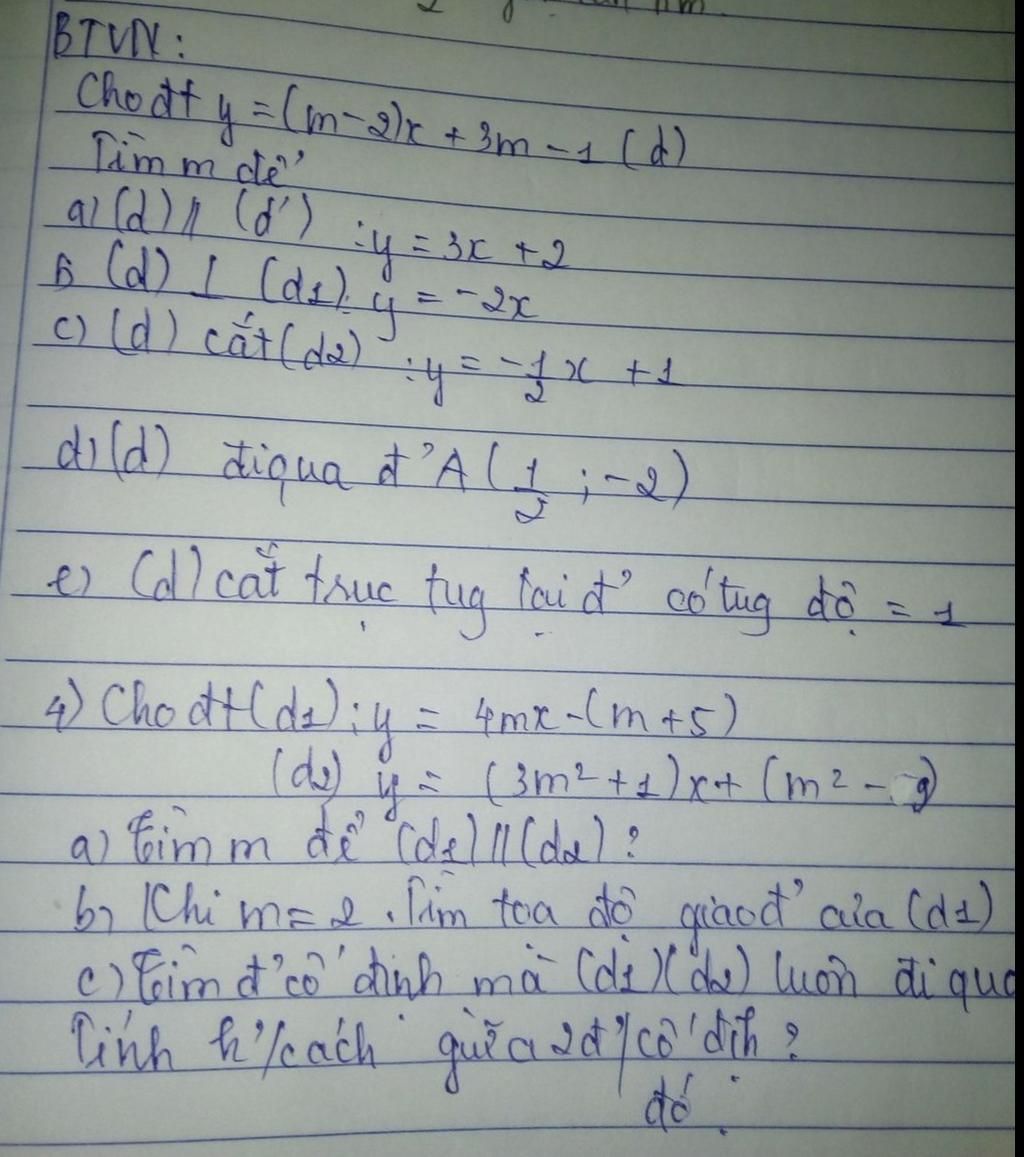 BTVN:
Cho đt y = (m-2)x + 3m - 1 (d)
Tìm m để
a) (d) // (d') : y = 3x + 2
b (d) ⊥ (d1). y = -2x
c) (d) cắt (d2) : y = -1/2 x + 1
d) (d) đi qua đ' A (1/2 ; -2)
e) (d) cắt trục tug tại đ' có tug độ = 1
4) Cho đt (d1) : y = 4mx - (m+5)
(d2) y = (3m²+1)x + (m² - 9)
a) tìm m để (d1) // (d2) ?
b) Khi m = 2. Tìm toa độ giao đ' của (d1)
c) tìm đ' cố định mà (d1)(d2) luôn đi qua
Tính k'/cách giữa 2đ'/cố địh ?
đó